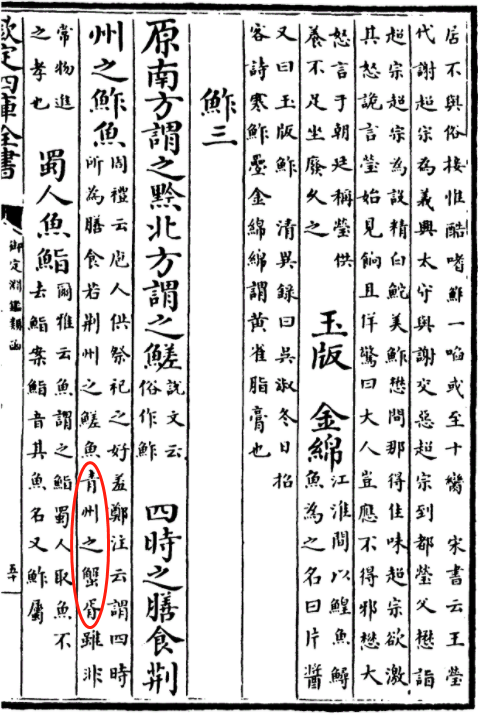 居不與俗接惟酷嗜鮓一啗或至十臠 宋書云王瑩
代謝超宗為義興太守與謝交惡超宗到都瑩父懋詣
超宗超宗為說精白鮸美鮓懋問那得佳味超宗欲激
其怒詭言瑩始見餉且佯驚曰大人豈應不得邪懋大
怒言于朝廷稱瑩供
養不足坐廢久之
玉版 金綿
江淮間以鰉魚鱘
魚為之名曰片醬
又曰玉版鮓 清異録曰吳淑冬日招
客詩寒鮓疊金綿綿謂黄雀脂膏也
鮓三
原南方謂之黔北方謂之䱹
說文云
俗作鮓
四時之膳食荆
州之鮓魚
周禮云庖人供祭祀之好羞鄭注云謂四時
所為膳食若荆州之䱹魚青州之蟹胥雖非
常物進
之孝也
蜀人魚鮨
爾雅云魚謂之鮨蜀人取魚不
去鮨案鮨音其魚名又鮓屬
欽定四庫全書
御定淵鑑類函
五十